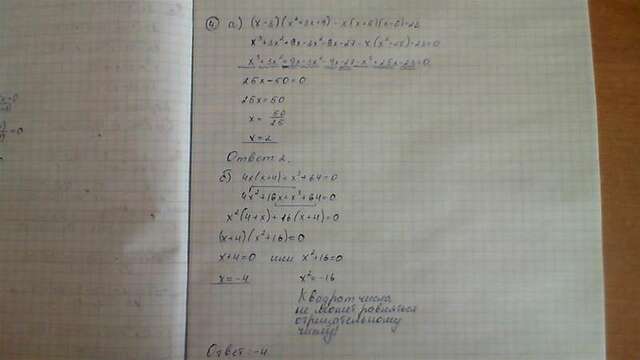 ④ а) (x-3)(x²+3x+9)-x(x+5)(x-5)=23
x³+3x²+9x-3x²-9x-27-x(x²-25)-23=0
x³+3x²+9x-3x²-9x-27-x³+25x-23=0
25x-50=0
25x=50
x= 50/25
x=2
Ответ 2.
б) 4x(x+4)+x³+64=0
4x²+16x+x³+64=0
x²(4+x)+16(x+4)=0
(x+4)(x²+16)=0
x+4=0 или x²+16=0
x=-4 x²=-16
Квадрат числа
не может равняться
отрицательному
числу
Ответ:-4